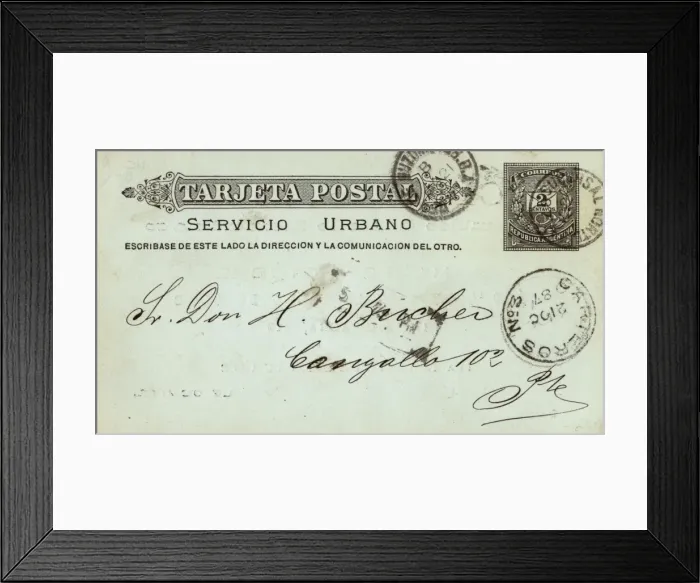 TARJETA POSTAL
SERVICIO URBANO
ESCRIBASE DE ESTE LADO LA DIRECCION Y LA COMUNICACION DEL OTRO.
CORREOS
2
CENTAVOS
SUCURSAL NORTE
CARTEROS No 3
87
Sr. Don H. Bucher
Cangallo 102
Pte